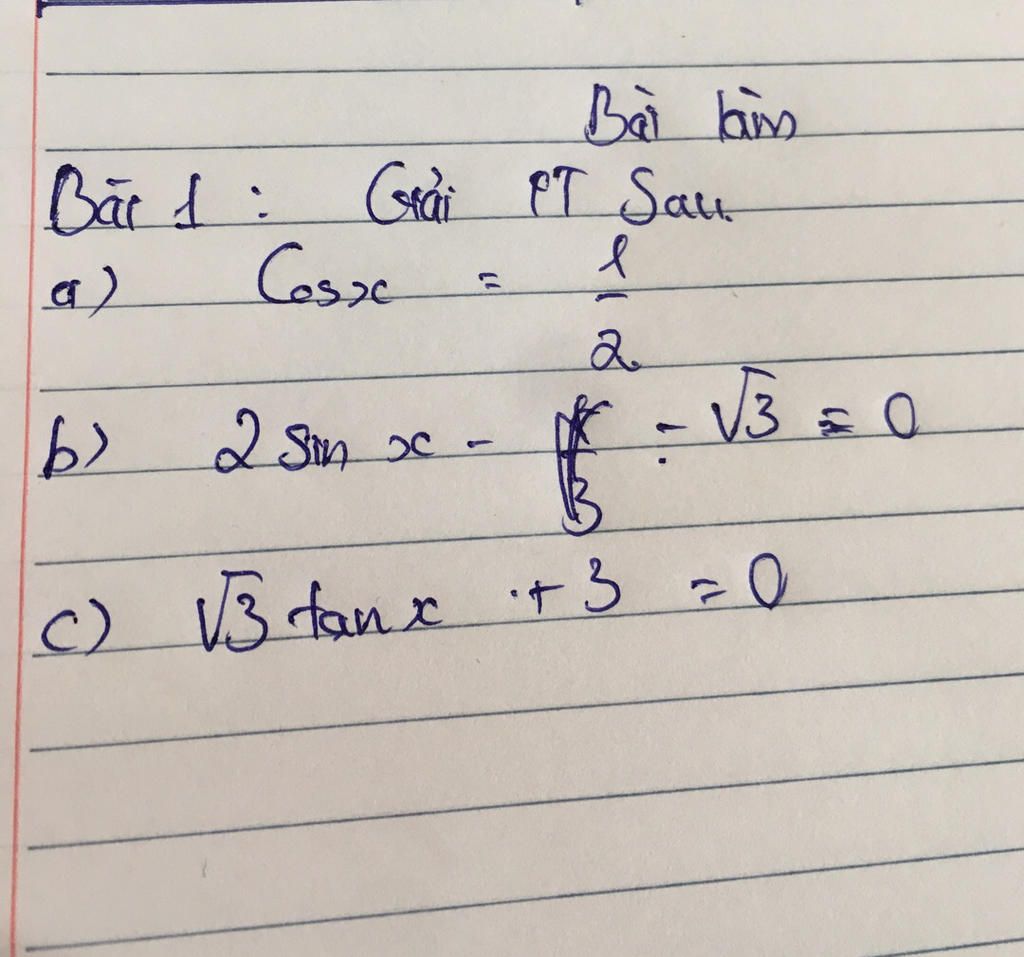 Bài làm
Bài 1 : Giải PT Sau.
a) Cosx = 1/2
b) 2 sin x - π/3 - √3 = 0
c) √3 tan x + 3 = 0